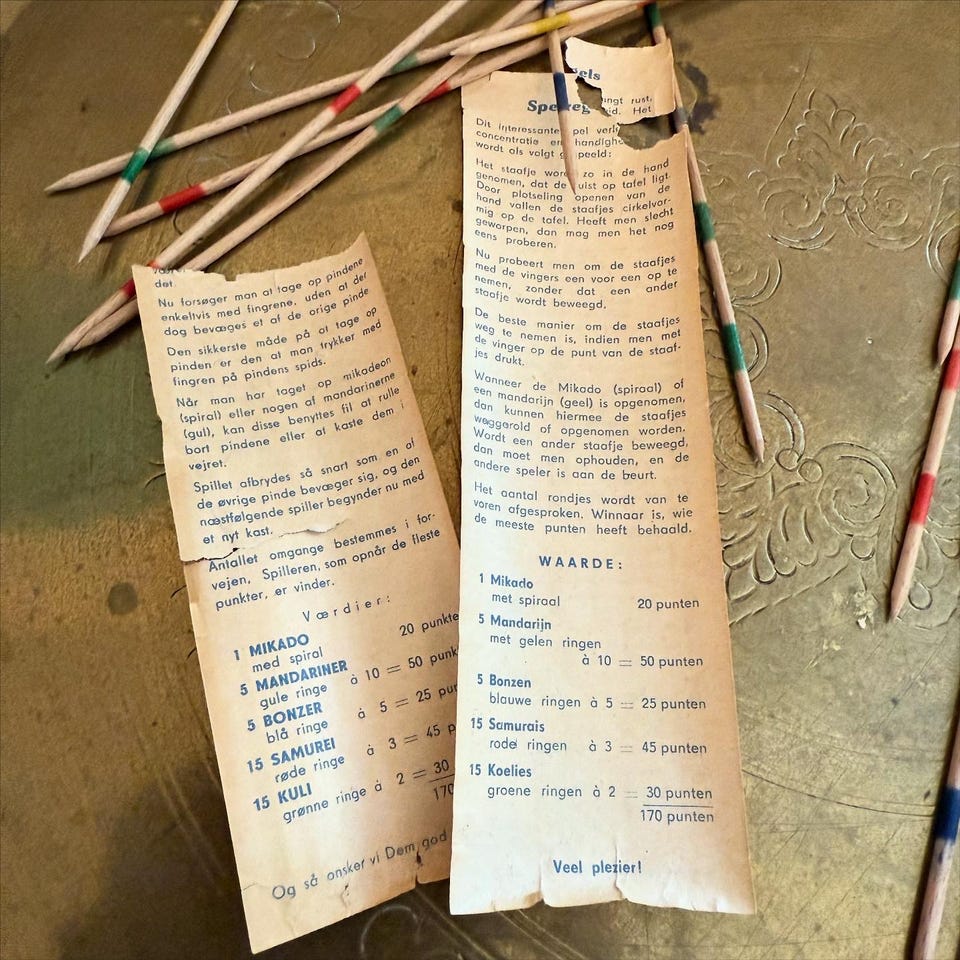 det.
Nu forsøger man at tage op pindene
enkeltvis med fingrene, uden at der
dog bevæges et af de orige pinde
Den sikkerste måde på at tage op
pinden er den at man trykker med
fingren på pindens spids.
Når man har taget op mikadoen
(spiral) eller nogen af mandarinerne
(gul), kan disse benyttes fil at rulle
bort pindene eller at kaste dem i
vejret.
Spillet afbrydes så snart som en af
de øvrige pinde bevæger sig, og den
næstfølgende spiller begynder nu med
et nyt kast.
Antallet omgange bestemmes i for-
vejen, Spilleren, som opnår de fleste
punkter, er vinder.
Værdier:
1 MIKADO
med spiral 20 punkte
5 MANDARINER
gule ringe à 10 = 50 punk
5 BONZER
blå ringe à 5 = 25 pu
15 SAMUREI
røde ringe à 3 = 45 p
15 KULI
grønne ringe à 2 = 30
170
Og så ønsker vi Dem god
els
Spelreg
ingt rust,
id. Het
Dit interessante spel verl
concentratie en handigh
wordt als volgt gespeeld:
Het staafje word zo in de hand
genomen, dat de vuist op tafel ligt.
Door plotseling openen van de
hand vallen de staafjes cirkelvor-
mig op de tafel. Heeft men slecht
geworpen, dan mag men het nog
eens proberen.
Nu probeert men om de staafjes
med de vingers een voor een op te
nemen, zonder dat een ander
staafje wordt beweegd.
De beste manier om de staafjes
weg te nemen is, indien men met
de vinger op de punt van de staaf-
jes drukt.
Wanneer de Mikado (spiraal) of
een mandarijn (geel) is opgenomen,
dan kunnen hiermee de staafjes
weggerold of opgenomen worden.
Wordt een ander staafje beweegd,
dan moet men ophouden, en de
andere speler is aan de beurt.
Het aantal rondjes wordt van te
voren afgesproken. Winnaar is, wie
de meeste punten heeft behaald.
WAARDE:
1 Mikado
met spiraal 20 punten
5 Mandarijn
met gelen ringen
à 10 = 50 punten
5 Bonzen
blauwe ringen à 5 = 25 punten
15 Samurais
rode ringen à 3 = 45 punten
15 Koelies
groene ringen à 2 = 30 punten
170 punten
Veel plezier!